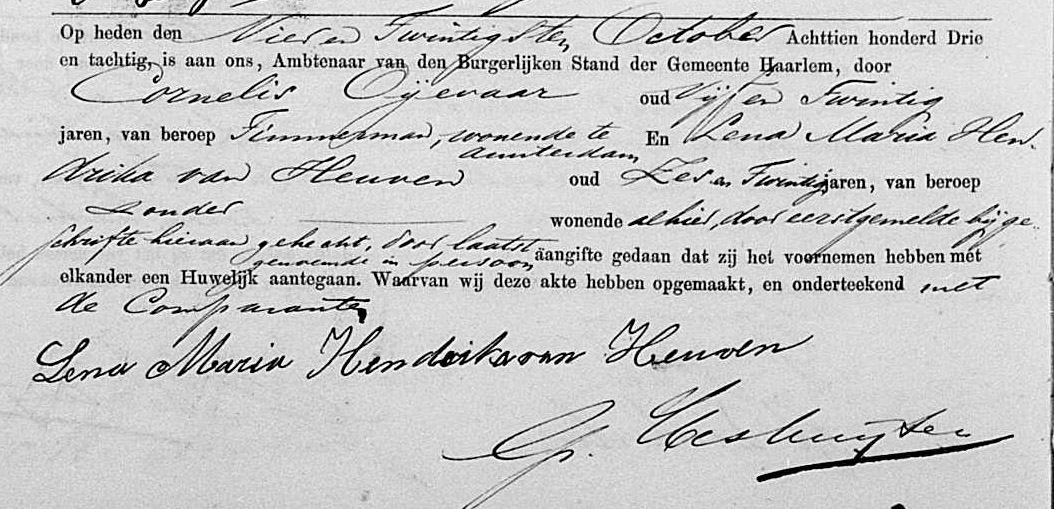 Op heden den Vier en Twintigsten October Achttien honderd Drie
en tachtig, is aan ons, Ambtenaar van den Burgerlijken Stand der Gemeente Haarlem, door
Cornelis Oijevaar oud Vijf en Twintig
jaren, van beroep Timmerman, wonende te Amsterdam En Lena Maria Hen
drika van Heuven oud Zes en Twintig jaren, van beroep
zonder wonende alhier, door eerstgemelde bij ge
schrifte hieraan gehecht, door laatst
genoemde in persoon aangifte gedaan dat zij het voornemen hebben met
elkander een Huwelijk aantegaan. Waarvan wij deze akte hebben opgemaakt, en onderteekend met
de Comparante,
Lena Maria Hendrika van Heuven